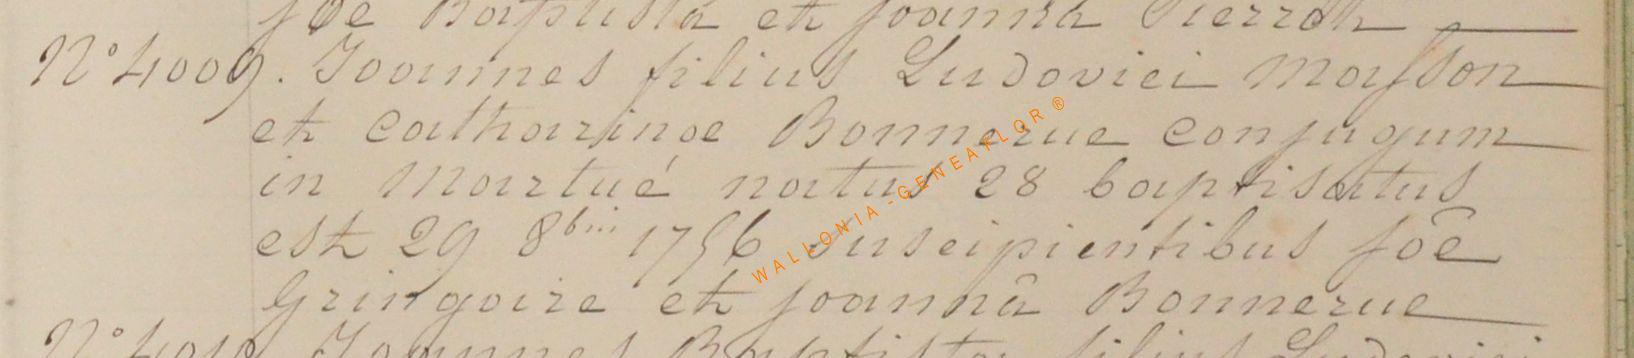 joê Baptistâ et joannâ Pierrot
N° 4009. Joannes filius Ludovici Masson
et Catharinae Bonnerue conjugum
in Martué natus 28 baptisatus
est 29 8bris 1756 suscipientibus joê
Gringoire et joannâ Bonnerue
N° 4010 Joannes Baptista filius Ludovici
WALLONIA-GENEAFLOR ®